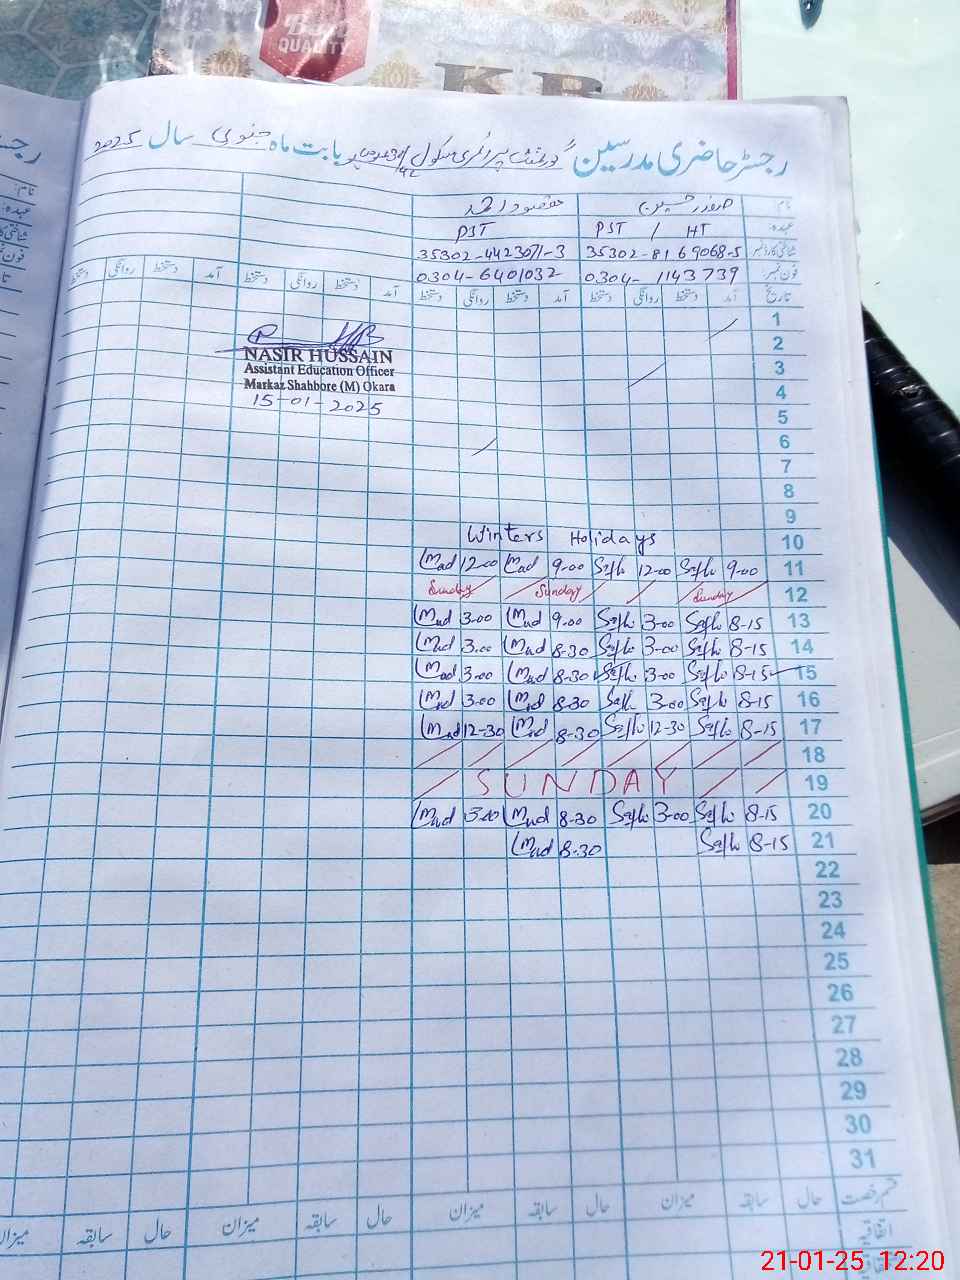 Best
QUALITY
KB
رجسٹر حاضری مدرسین گورنمنٹ پرائمری سکول بابت ماہ جنوری سال 2025
نام صفدر حسین مقصود احمد
عہدہ PST / HT PST
شناختی کارڈ نمبر 35302-8169068-5 35302-4423071-3
فون نمبر 0304-1143739 0304-6401032
تاریخ آمد دستخط روانگی دستخط آمد دستخط روانگی دستخط آمد دستخط روانگی دستخط آمد دستخط روانگی دستخط
1
2
3
4
5
6
7
8
9
Winters Holidays 10
12-00 9-00 12-00 9-00 11
Sunday Sunday Sunday 12
3-00 9-00 3-00 8-15 13
3-00 8-30 3-00 8-15 14
3-00 8-30 3-00 8-15 15
3-00 8-30 3-00 8-15 16
12-30 8-30 12-30 8-15 17
18
SUNDAY 19
3-00 8-30 3-00 8-15 20
8-30 8-15 21
22
23
24
25
26
27
28
29
30
31
NASIR HUSSAIN
Assistant Education Officer
Markaz Shahbore (M) Okara
15-01-2025
قسم رخصت حال سابقہ میزان حال سابقہ میزان حال سابقہ میزان حال سابقہ میزان
اتفاقیہ
21-01-25 12:20